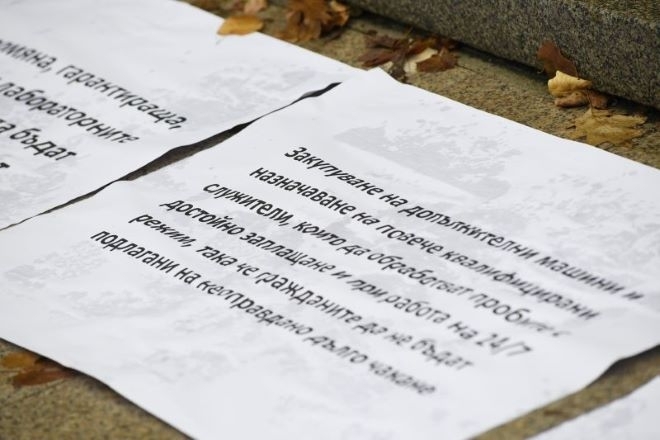 омяна, гарантираща,
лабораторните
а бъдат
т
Закупуване на допълнителни машини и
назначаване на повече квалифицирани
служители, които да обработват пробите с
достойно заплащане и при работа на 24/7
режим, така че гражданите да не бъдат
подлагани на неоправдано дълго чакане